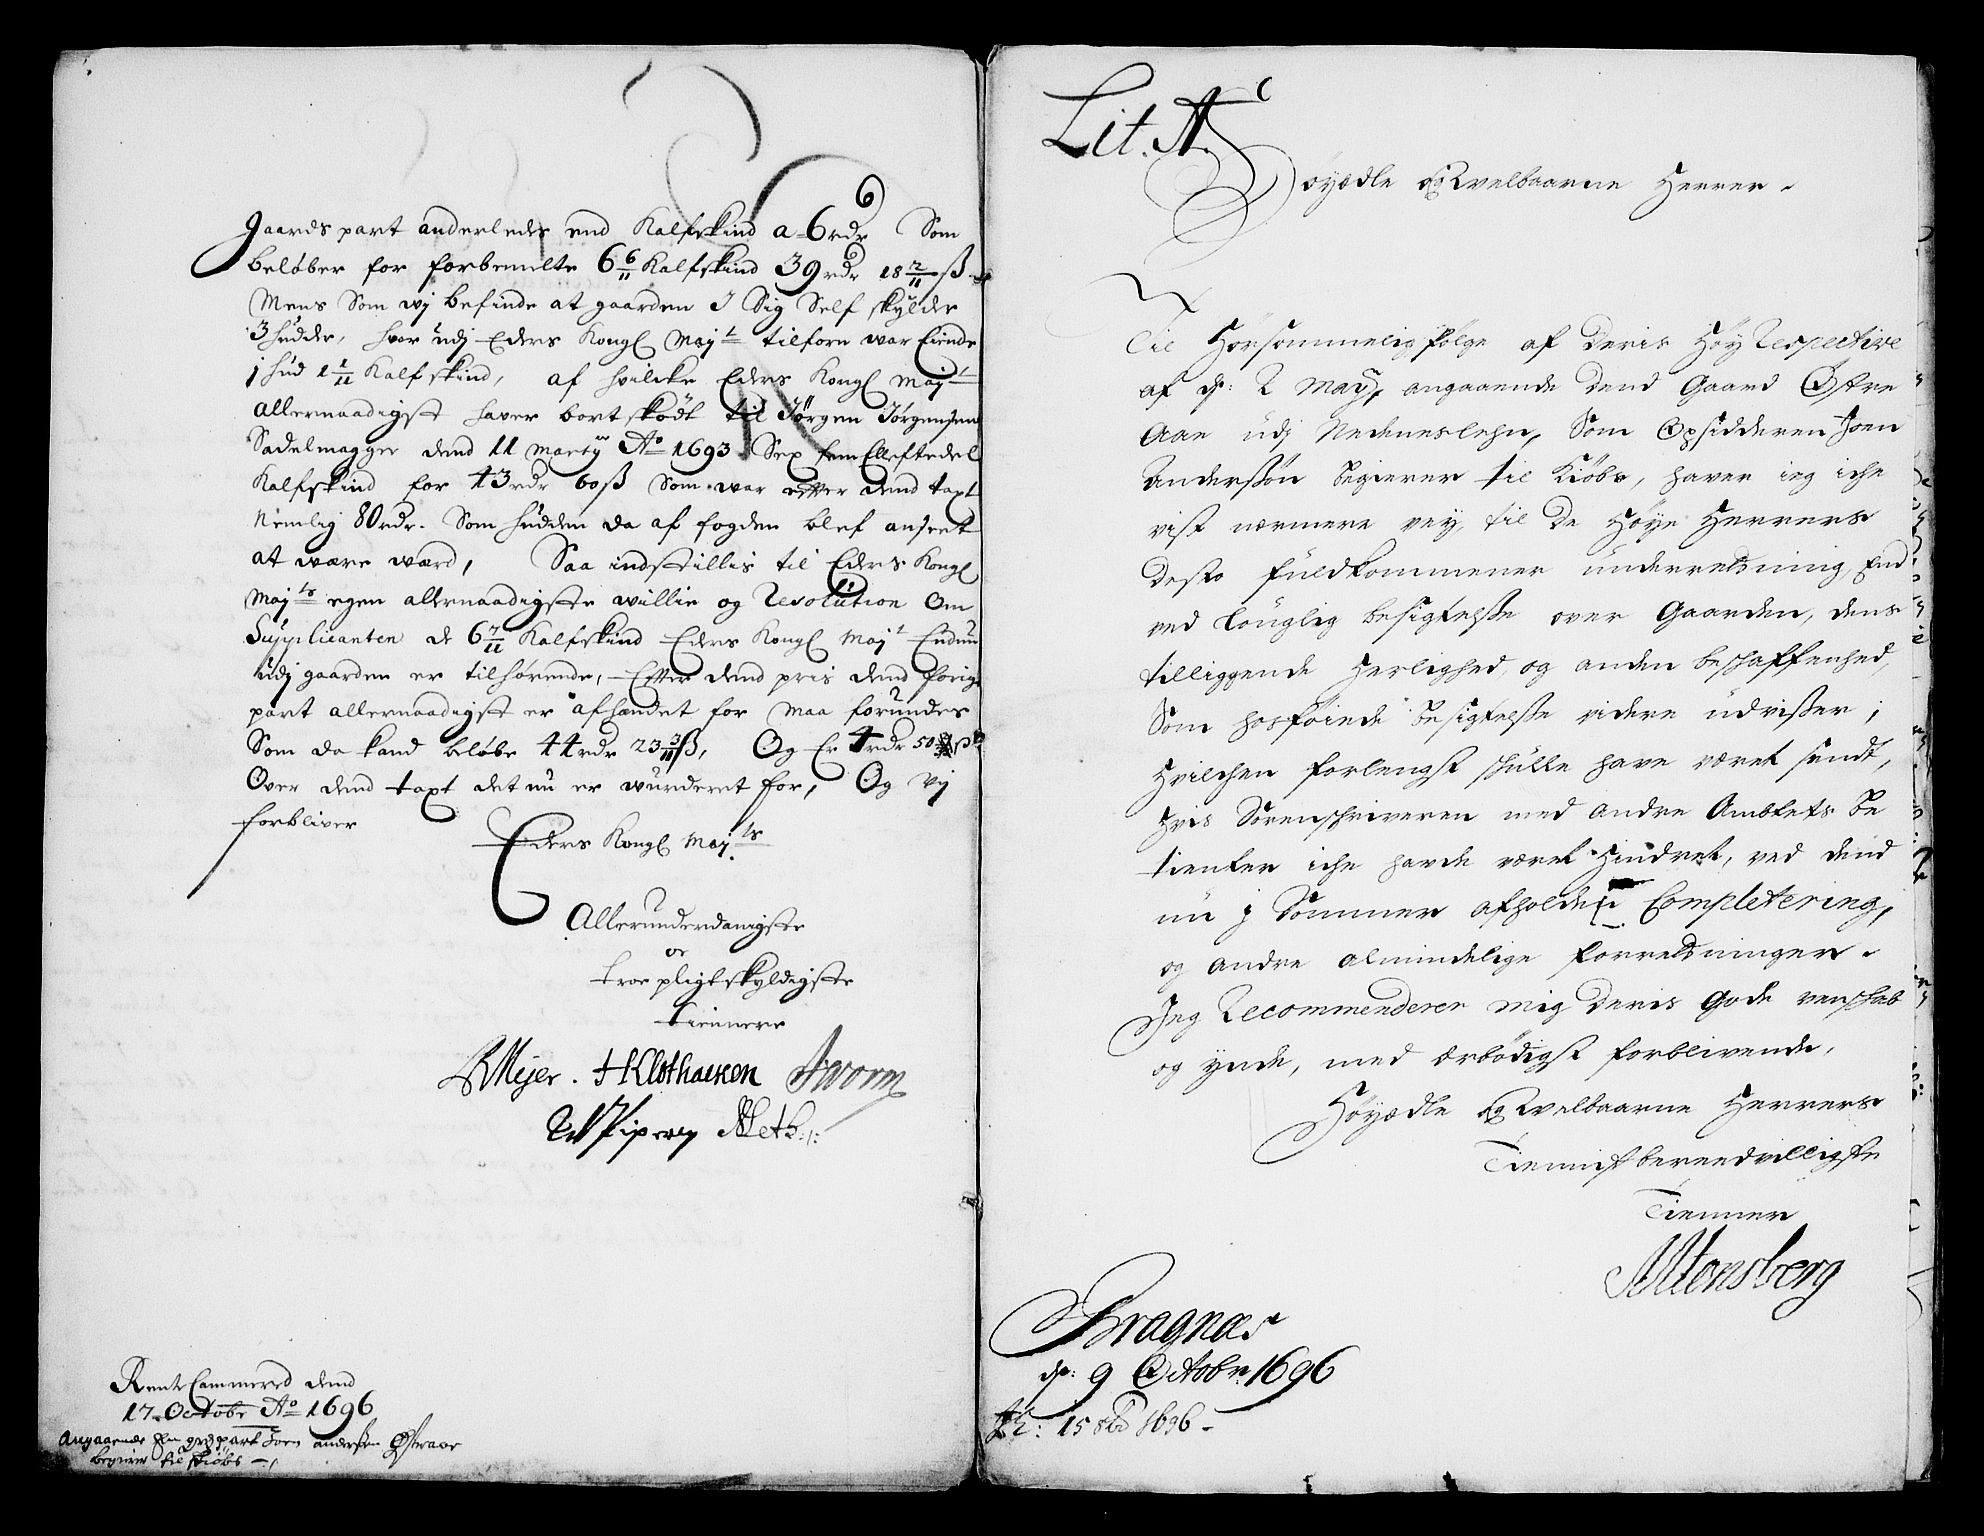 6
gaards part anderledes end Kalfskind a 6 rdr Som
beløber for forbemelte 6 6/11 Kalfskind 39 rdr 18 2/11 ß.
Mens Som wj befinde at gaarden I Sig Self skylder
3 hudder, hvor udj Eders Kongl Majt tilforn war Eiende
1 hud 1 1/11 Kalfskind, af hvilcke Eders Kongl Majt
allernaadigst haver bortskødt til Jørgen Jørgensen
Sadelmagger dend 11 Martij Ao 1693 Sex fem Elleftedel
Kalfskind for 43 rdr 60 ß Som war efter dend taxt
Nemlig 80 rdr. Som hudden da af fogden blef anseet
at være værd, Saa indstillis til Eders Kongl
Majts egen allernaadigste willie og Resolution Om
Supplicanten de 6 7/11 Kalfskind Eders Kongl Majt Endnu
udj gaarden er tilhørende, Efter dend pris dend forige
part allernaadigst er afhændet for maa forundes
Som da kand beløbe 44 rdr 23 3/11 ß, Og Er 4 rdr 50
Over dend taxt det nu er wurderet for, Og vj
forbliver
Eders Kongl Majts
Allerunderdanigste
oc
troe pligtskyldigste
tiennere
Mejer. HKlothacken Worm
Pipervy Meth:
RenteCammered dend
17. Octobr Ao 1696
Angaaende part Joen andersen Østraae
begierer til Kiøbs
Lit. A.
Høyædle og Welbaarne Herrer
Til Hørsommelig følge af deris Høy Respective
af d: 2 May, angaaende dend Gaard Østre
Aae udj Nedeneslehn, Som Opsidderen Joen
Anderssøn begierer til Kiøbs, haver ieg iche
vist nærmere vey, til de Høye Herrers
desto fuldkommener underretning, End
ved Louglig besigtelsse over Gaarden, dens
tilliggende Herlighed, og anden beschaffenhed,
Som hosføiede besigtelsse videre udvisser;
Hvilchen forlengst schulle have været sendt,
Hvis Sorenschriveren med andre Ambtets Be
tienter iche hafde været Hindret, ved dend
nu j Sommer afholden Completering,
og andre almindelige forretninger.
Jeg Recommenderer mig deris Gode venschab
og ynde, med ærbødigst forblivende,
Høyædle og Welbaarne Herrers
Tienistbereedvilligste
Tiener
MTonsberg
Bragnæs
d: 9 Octobr: 1696
15 8br 1696